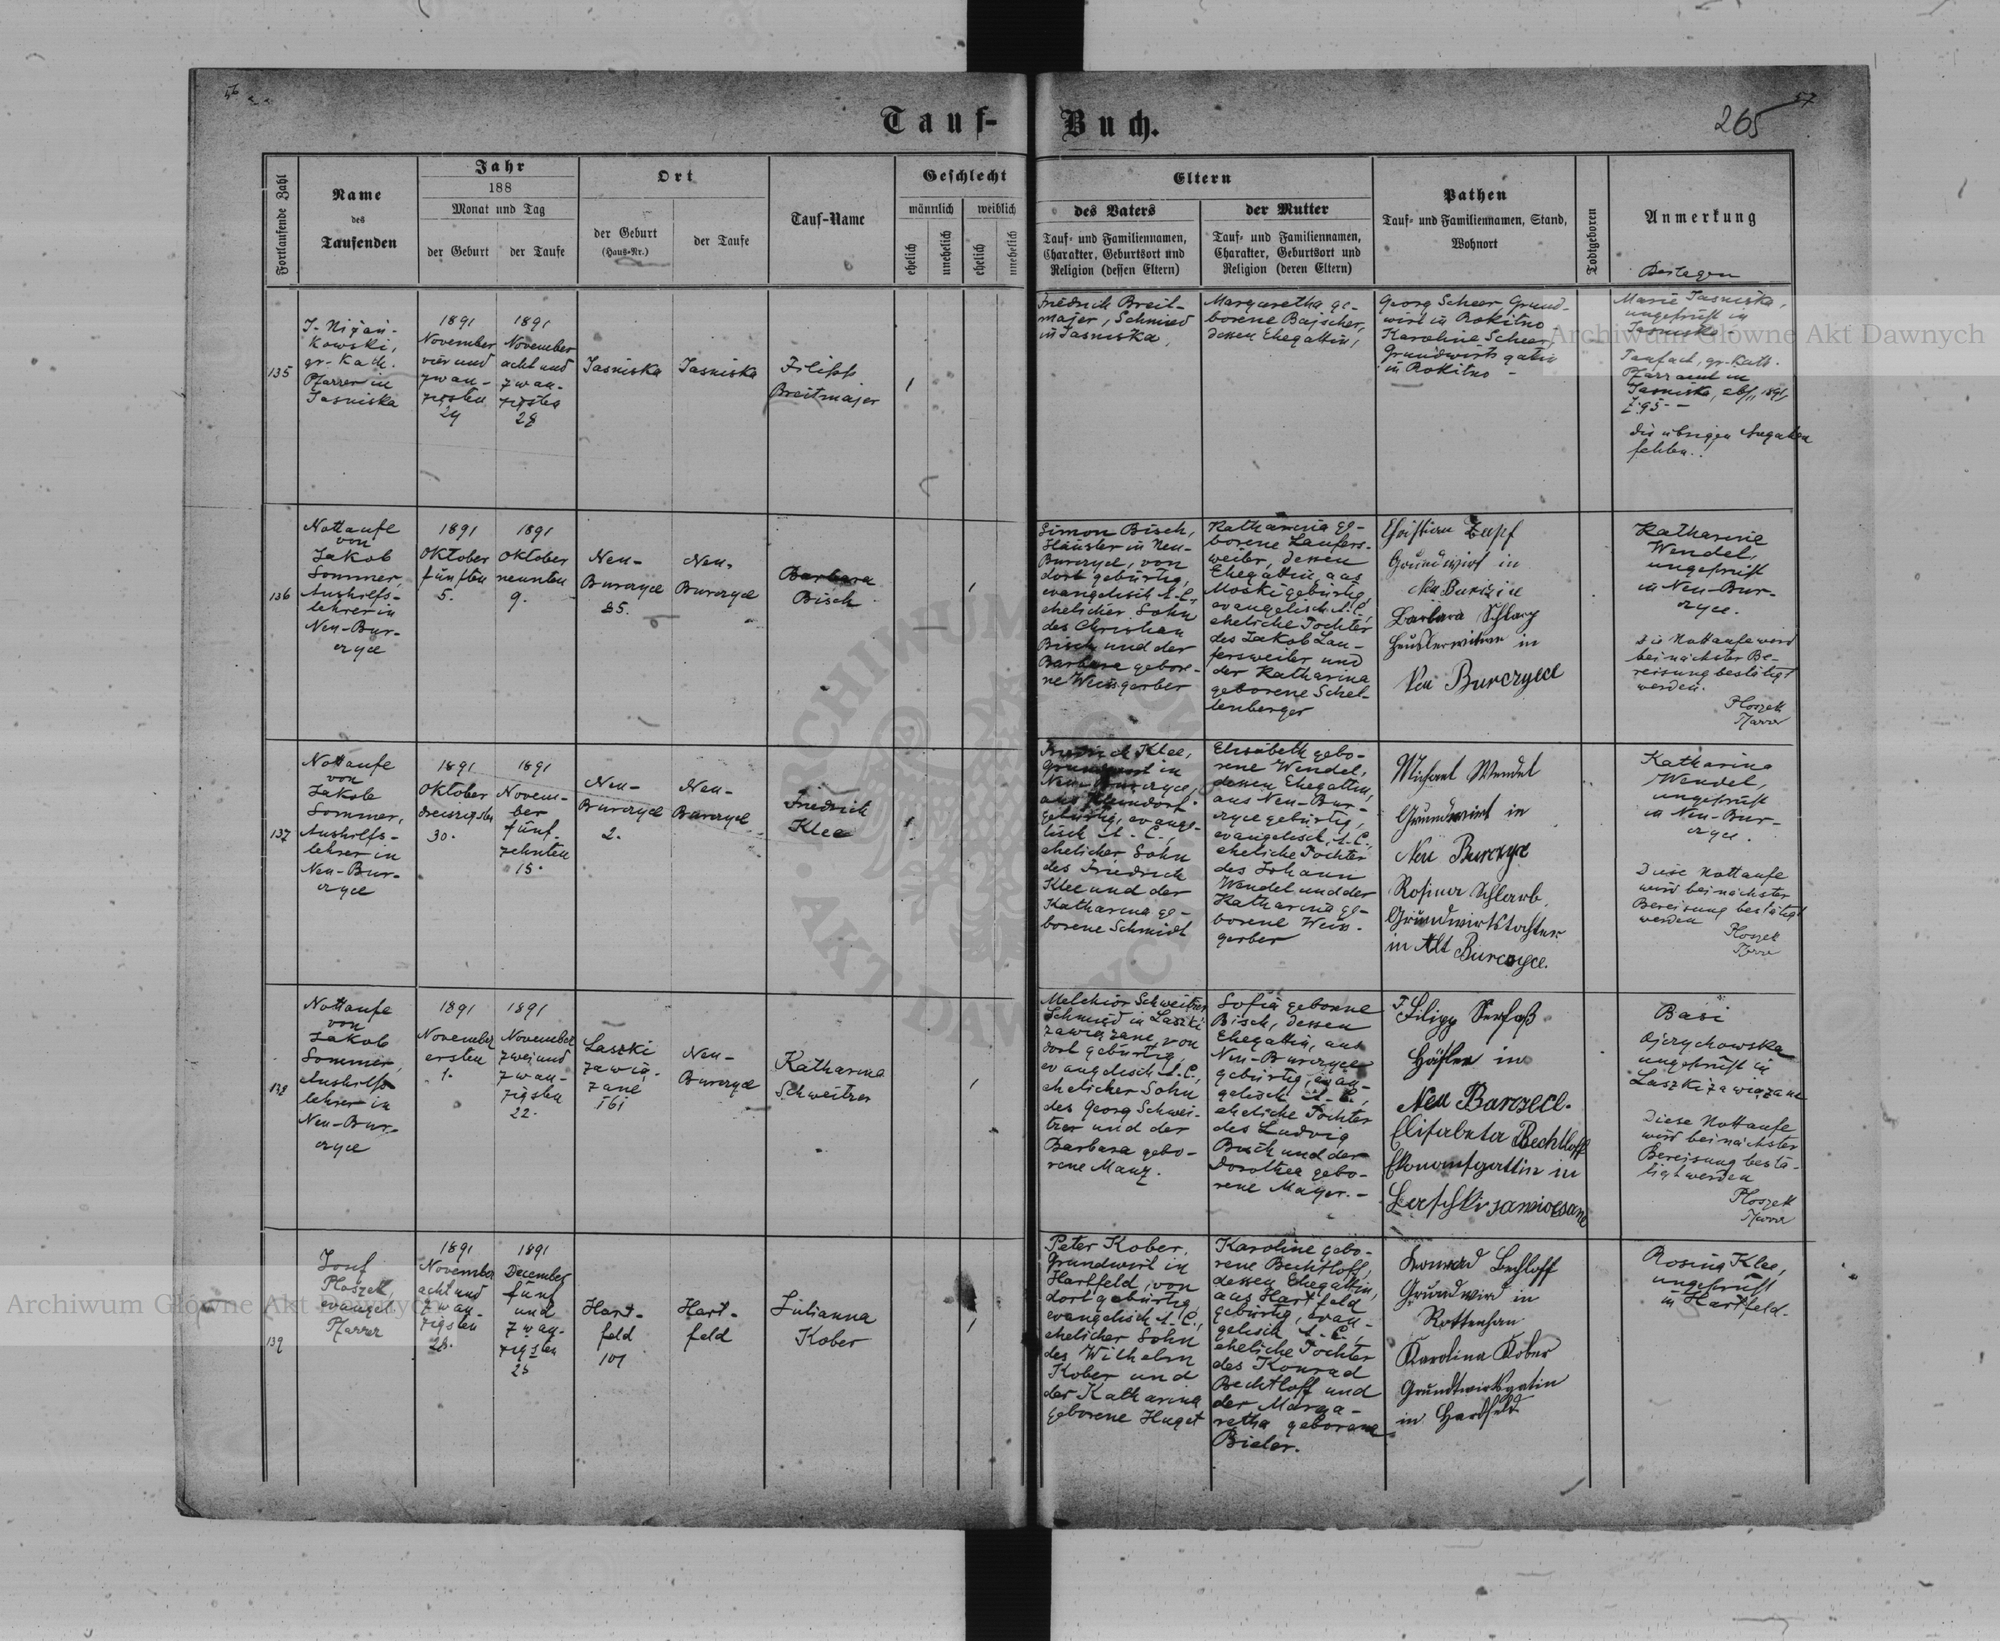 56
57
Tauf-Buch.
265
Fortlaufende Zahl
Name
des
Taufenden
Jahr
188
Monat und Tag
der Geburt
der Taufe
Ort
der Geburt
(Haus-Nr.)
der Taufe
Tauf-Name
Geschlecht
männlich
weiblich
ehelich
unehelich
ehelich
unehelich
Eltern
des Vaters
Tauf- und Familiennamen,
Charakter, Geburtsort und
Religion (dessen Eltern)
der Mutter
Tauf- und Familiennamen,
Charakter, Geburtsort und
Religion (deren Eltern)
Pathen
Tauf- und Familiennamen, Stand,
Wohnort
Todtgeboren
Anmerkung
135
gr. Kath.
Pfarrer in
Jasniska
1891
November
vier und
zwan-
zigsten
24
1891
November
acht und
zwan-
zigsten
28
Jasniska
Jasniska
Filipp
Breitmajer
1
Friedrich Breit-
majer, Schmied
in Jasniska,
Margaretha ge-
borene Bajscher,
dessen Ehegattin,
Georg Scheer, Grund-
wirt in Rokitno
Karoline Scheer,
Grundwirts gatin
in Rokitno -
Marie Jasniska,
ungeprüft in
Jasniska
Taufact, gr. Kath.
Pfarramt in
Jasniska, 1891,
Z. 95 -
die übrigen Angaben
fehlen.
136
Nottaufe
von
Jakob
Sommer,
Aushilfs-
lehrer in
Neu-Bur-
czyce
1891
Oktober
fünften
5.
1891
Oktober
neunten
9.
Neu-
Burczyce
85.
Neu-
Burczyce
Barbara
Bisch
1
Simon Bisch,
Häusler in Neu-
Burczyce, von
dort gebürtig,
evangelisch A. C.,
ehelicher Sohn
des Christian
Bisch und der
Barbara gebore-
ne Weisgerber
Katharina ge-
borene Laufers-
weiler, dessen
Ehegattin, aus
Moski gebürtig,
evangelisch A. C.,
eheliche Tochter
des Jakob Lau-
fersweiler und
der Katharina
geborene Schel-
lenberger
Christian
Grundwirt in
Neu
Barbara Schlarp
in
Neu Burczyce
Katharine
Wendel,
ungeprüft
in Neu-Bur-
czyce.
Die Nottaufe wird
bei nächster Be-
reisung bestätigt
werden.
Ploszek
Pfarrer
137
Nottaufe
von
Jakob
Sommer,
Aushilfs-
lehrer in
Neu-Bur-
czyce
1891
Oktober
dreizigsten
30.
1891
Novem-
ber
fünf-
zehnten
15.
Neu-
Burczyce
2.
Neu-
Burczyce
Friedrich
Klee
1
Friedrich Klee,
Grundwirt in
Neu-Burczyce,
aus
gebürtig, evange-
lisch A. C.,
ehelicher Sohn
des Friedrich
Klee und der
Katharina ge-
borene Schmidt
Elisabeth gebo-
rene Wendel,
dessen Ehegattin,
aus Neu-Bur-
czyce gebürtig,
evangelisch A. C.,
eheliche Tochter
des Johann
Wendel und der
Katharina ge-
borene Weis-
gerber
Michael Wendel
Grundwirt in
Neu Burczyce
Rosina Schlarb,
Grundwirtstochter
in Alt Burczyce.
Katharina
Wendel,
ungeprüft
in Neu-Bur-
czyce.
Diese Nottaufe
wird bei nächster
Bereisung bestätigt
werden
Ploszek
Pfarrer
138
Nottaufe
von
Jakob
Sommer,
Aushilfs-
lehrer in
Neu-Bur-
czyce
1891
November
ersten
1.
1891
November
zwei und
zwan-
zigsten
22.
Laszki
zawią-
zane
161
Neu-
Burczyce
Katharina
Schweitzer
1
Melchior Schweitzer
Schmied in Laszki
zawiązane, von
dort gebürtig,
evangelisch A. C.,
ehelicher Sohn
des Georg Schwei-
tzer und der
Barbara gebo-
rene Manz.
Sofia geborene
Bisch, dessen
Ehegattin, aus
Neu-Burczyce
gebürtig, evan-
gelisch A. C.,
eheliche Tochter
des Ludvig
Bisch und der
Dorothea gebo-
rene Mayer. -
Filipp Serfaß
in
Neu Barczece.
Elisabeta Bechtloff
Ekonomsgattin in
Basi
Ojczychowska
ungeprüft in
Laszki zawiązane
Diese Nottaufe
wird bei nächster
Bereisung bestä-
tigt werden
Ploszek
Pfarrer
139
Josef
Ploszek,
evangel.
Pfarrer
1891
November
acht und
zwan-
zigsten
28.
1891
December
fünf
und
zwan-
zigsten
25
Hart-
feld
101
Hart-
feld
Julianna
Kober
1
Peter Kober,
Grundwirt in
Hartfeld, von
dort gebürtig
evangelisch A. C.,
ehelicher Sohn
des Wilhelm
Kober und
der Katharina
geborene Huget
Karoline gebo-
rene Bechtloff,
dessen Ehegattin,
aus Hartfeld
gebürtig, evan-
gelisch A. C.,
eheliche Tochter
des Konrad
Bechtloff und
der Marga-
retha geborene
Bieler.
Konrad Bechloff
Grundwird in
Rottenhan
Karolina Kober
Grundtwirtsgatin
in Hardfeld
Rosina Klee,
ungeprüft
in Hartfeld.
Archiwum Główne Akt Dawnych
Archiwum Główne Akt Dawnych
ARCHIWUM GŁÓWNE AKT DAWNYCH